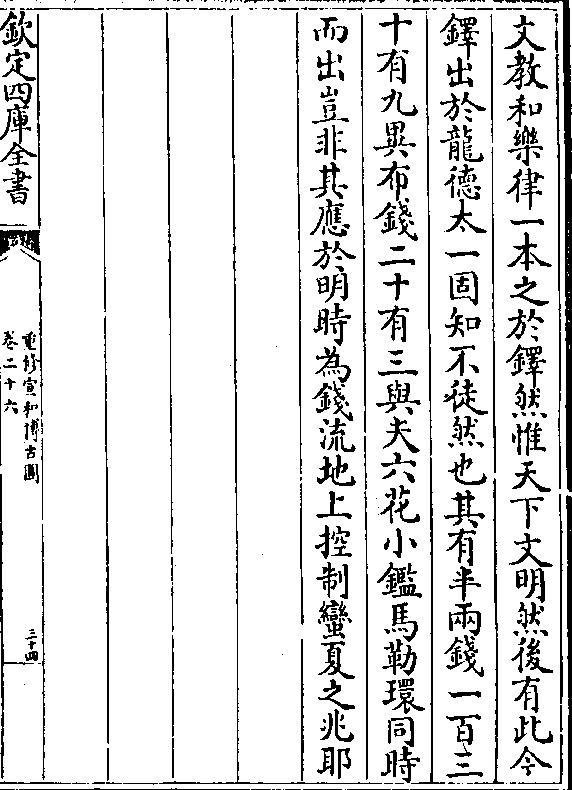 文教和樂律一本之於鐸然惟天下文明然後有此今
鐸出於龍德太一固知不徒然也其有半兩錢一百三
十有九異布錢二十有三與夫六花小鑑馬勒環同時
而出豈非其應於明時為錢流地上控制蠻夏之兆耶
欽定四庫全書
重修宣和博古圖
卷二十六
三十四